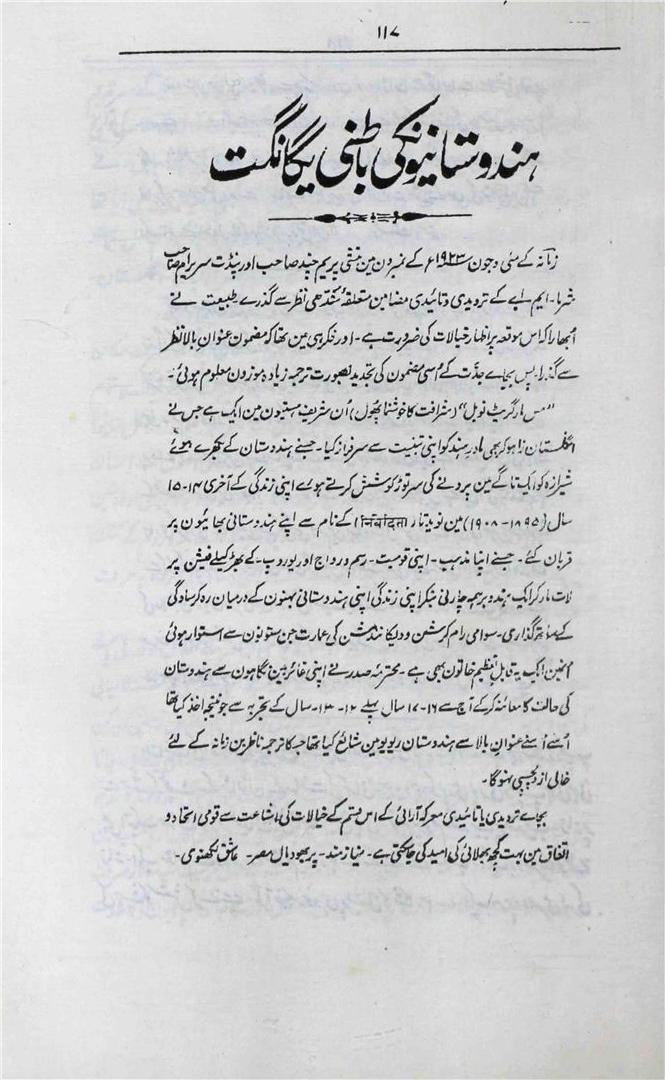 ۱۱۷
ہندوستانیونکی باطنی یگانگت
زمانہ کے مئی وجون ۱۹۲۳ء کے نمبرون مین منشی پریم چند صاحب اور پنڈت سریرام صاحب
شرما۔ ایم اے کے تردیدی وتائیدی مضامین متعلقہ شدھی نظر سے گذرے طبیعت نے
اُبھارا کہ اس موقعہ پر اظہار خیالات کی ضرورت ہے۔ اور فکر ہی مین تھا کہ مضمون عنوان بالا نظر
سے گذرا پس بجاے جدّت کے اُسی مضمون کی تجدید بصورت ترجمہ زیادہ موزون معلوم ہوئی۔
"مس مارگریٹ نوبل" (شرافت کا خوشنما پھول) اُن شریف ہستیون مین ایک ہے جس نے
انگلستان زا ہوکر بھی مادر ہند کو اپنی تبنیت سے سرفراز کیا۔ جسنے ہندوستان کے بکھرے ہوئے
شیرازہ کو ایک تاگے مین پرونے کی سرتوڑ کوشش کرتے ہوے اپنی زندگی کے آخری ۱۴-۱۵
سال (۱۸۹۵-۱۹۰۸) مین نویدیتا (निर्वादता) کے نام سے اپنے ہندوستانی بھائیون پر
قربان کئے۔ جسنے اپنا مذہب۔ اپنی قومیت۔ رسم ورواج اور یوروپ کے بھڑکیلے فیشن پر
لات مارکر ایک ہندو برہمہ چارنی بنکر اپنی زندگی اپنی ہندوستانی بہنون کے درمیان رہ کر سادگی
کے ساتھ گذاری۔ سوامی رام کرشن و ویویکانند مشن کی عمارت جن ستونون سے استوار ہوئی
انھین ایک یہ قابل تعظیم خاتون بھی ہے۔ محترمہ صدر نے اپنی غائر بین نگاہون سے ہندوستان
کی حالت کا معائنہ کرکے آج سے ۱۶-۱۷ سال پہلے ۱۲-۱۳ سال کے تجربہ سے جو نتیجہ اخذ کیا تھا
اُسے اُسنے عنوان بالا سے ہندوستان ریویو مین شائع کیا تھا جسکا ترجمہ ناظرین زمانہ کے لئے
خالی از دلچسپی نہوگا۔
بجاے تردیدی یا تائیدی معرکہ آرائی کے اس قسم کے خیالات کی اشاعت سے قومی اتحاد و
اتفاق مین بہت کچھ بھلائی کی امید کی جاسکتی ہے۔ نیازمند۔ پربھودیال مصر۔ عاشق لکھنوی۔